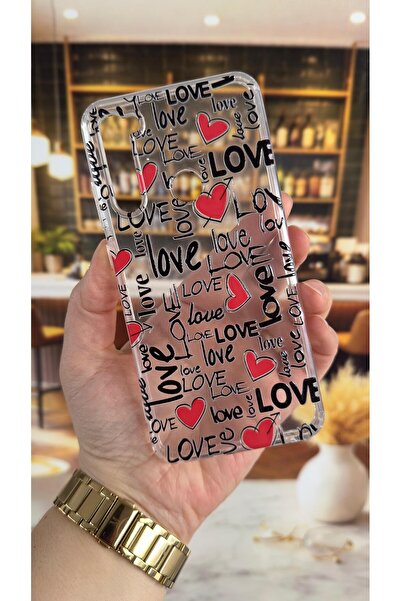 LOVE LOVE
love love
LOVE love
LOVE LOVE
LOVE
LOVE
LOVE love
love love
LOVE
LOVE love
love LOVE
LOVE love
LOVE LOVE
love LOVE
LOVE LOVE
love love
LOVE
love LOVE
LOVE LOVE
LOVE love love
LOVE